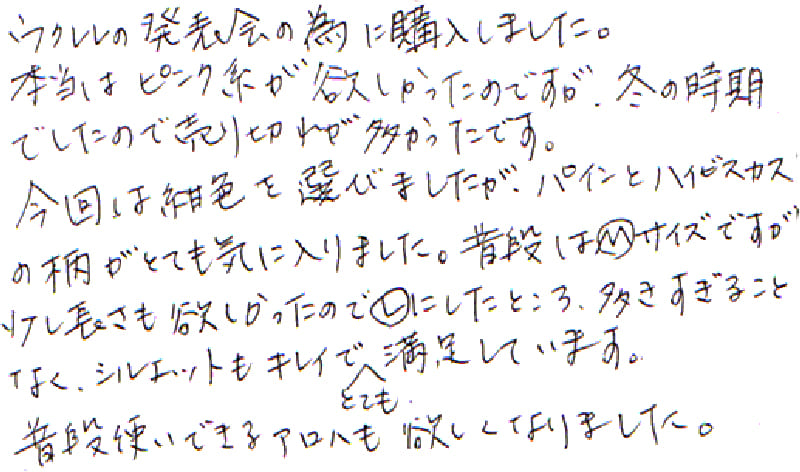 ウクレレの発表会の為に購入しました。
本当はピンク系が欲しかったのですが、冬の時期
でしたので売り切れが多かったです。
今回は紺色を選びましたが、パインとハイビスカス
の柄がとても気に入りました。普段はⓂサイズですが
少し長さも欲しかったのでⓁにしたところ、多きすぎること
なく、シルエットもキレイで満足しています。
とても
普段使いできるアロハも欲しくなりました。